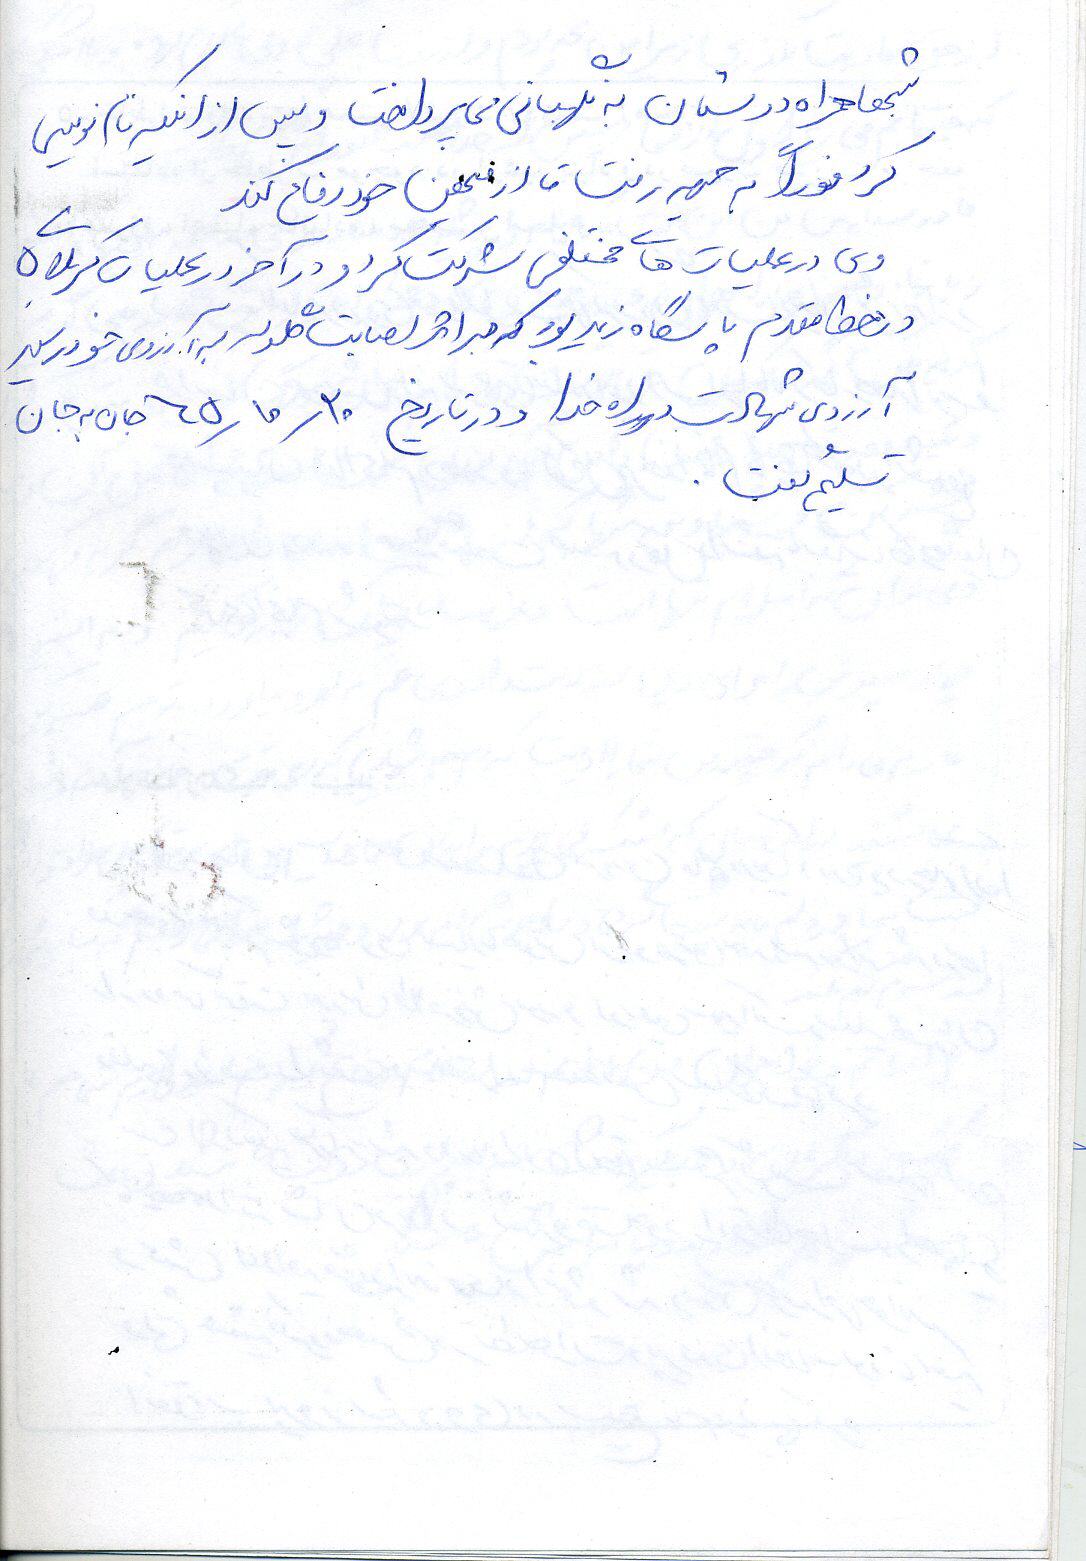 شبها همراه دوستان به نگهبانی می پرداخت و پس از اینکه نام نویسی
کرد فوراً به جبهه رفت تا از میهن خود دفاع کند
وی در عملیات های مختلفی شرکت کرد و در آخر در عملیات کربلای ۵
در خط مقدم پاسگاه زید بود که بر اثر اصابت گلوله به آرزوی خود رسید
آرزوی شهادت در راه خدا و در تاریخ ۲۰/۱۰/۶۵ جان به جان
تسلیم گفت .